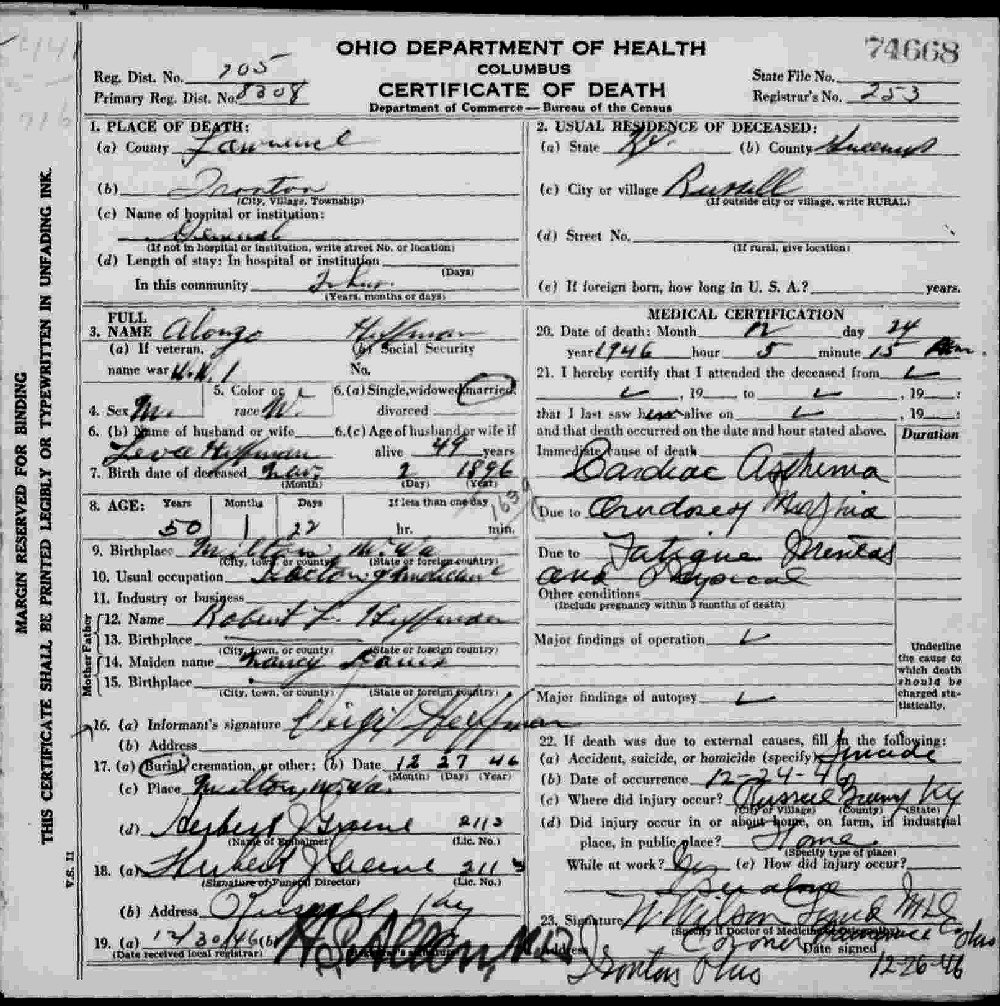 OHIO DEPARTMENT OF HEALTH
COLUMBUS
CERTIFICATE OF DEATH
Department of Commerce — Bureau of the Census
74668
Reg. Dist. No. 705
Primary Reg. Dist. No. 8308
State File No.
Registrar's No. 253
MARGIN RESERVED FOR BINDING
THIS CERTIFICATE SHALL BE PRINTED LEGIBLY OR TYPEWRITTEN IN UNFADING INK.
V.S. 11
1. PLACE OF DEATH:
(a) County Lawrence
(b) Ironton
(City, Village, Township)
(c) Name of hospital or institution:
General
(If not in hospital or institution, write street No. or location)
(d) Length of stay: In hospital or institution
(Days)
In this community
(Years, months or days)
2. USUAL RESIDENCE OF DECEASED:
(a) State Ky. (b) County Greenup
(c) City or village Russell
(If outside city or village, write RURAL)
(d) Street No.
(If rural, give location)
(e) If foreign born, how long in U. S. A.? years.
3. FULL NAME Alonzo Huffman
(a) If veteran, name war W.W. 1
(b) Social Security No.
4. Sex M. 5. Color or race W. 6. (a) Single, widowed, married, divorced
6. (b) Name of husband or wife Leva Huffman
6. (c) Age of husband or wife if alive 49 years
7. Birth date of deceased Nov 2 1896
(Month) (Day) (Year)
8. AGE: Years Months Days If less than one day
50 1 22 hr. min.
9. Birthplace Milton W. Va
(City, town, or county) (State or foreign country)
10. Usual occupation
11. Industry or business
Father
12. Name Robert L. Huffman
13. Birthplace
(City, town, or county) (State or foreign country)
Mother
14. Maiden name Nancy Davis
15. Birthplace
(City, town, or county) (State or foreign country)
16. (a) Informant's signature Virgil Huffman
(b) Address
17. (a) Burial, cremation, or other: (b) Date 12 27 46
(Month) (Day) (Year)
(c) Place Milton, W. Va.
(d) Herbert J Greene 2113
(Name of Embalmer) (Lic. No.)
18. (a) Herbert J Greene 2113
(Signature of Funeral Director) (Lic. No.)
(b) Address Russell Ky
19. (a) 12/30/46 (b) H S Allen, M.D.
(Date received local registrar)
MEDICAL CERTIFICATION
20. Date of death: Month 12 day 24
year 1946 hour 5 minute 15
21. I hereby certify that I attended the deceased from
, 19 to , 19 :
that I last saw h alive on , 19 :
and that death occurred on the date and hour stated above.
Duration
Immediate cause of death
Cardiac Asthma
Due to
Due to Fatigue Mental
and Physical
Other conditions
(Include pregnancy within 3 months of death)
Major findings of operation
Major findings of autopsy
Underline the cause to which death should be charged statistically.
22. If death was due to external causes, fill in the following:
(a) Accident, suicide, or homicide (specify)
(b) Date of occurrence 12-24-46
(c) Where did injury occur? Russell Ky
(City or Village) (County) (State)
(d) Did injury occur in or about home, on farm, in industrial
place, in public place? Home
(Specify type of place)
While at work? (e) How did injury occur?
23. Signature W Wilson MD
(Specify if Doctor of Medicine
Coroner Lawrence Ohio
Address Ironton Ohio
Date signed 12-26-46